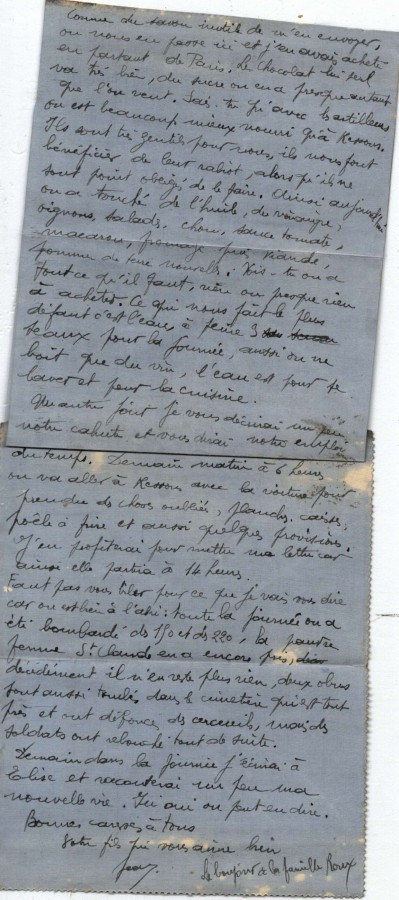 Comme du savon inutile de m'en envoyer,
on nous en passe ici et j'en avais acheté
en partant de Paris. Le chocolat lui seul
va très bien, du sucre on en a presque autant
que l'on veut. Sais-tu qu'avec les artilleurs
on est beaucoup mieux nourri qu'à Ressons.
Ils sont très gentils pour nous, ils nous font
bénéficier de leur rabiot, alors qu'ils ne
sont point obligés de le faire. Ainsi aujourd'hui
on a touché de l'huile, du vinaigre,
oignons, salade, chou, sauce tomate,
macaroni, fromage, viande,
pomme de terre nouvelle. Vois-tu on a
tout ce qu'il faut, rien ou presque rien
à acheter. Ce qui nous fait le plus
défaut c'est l'eau, à peine 3
seaux pour la journée, aussi on ne
boit que du vin, l'eau est pour se
laver et pour la cuisine.
Un autre jour je vous décrirai un peu
notre cahute et vous dirai notre emploi
du temps. Demain matin à 6 heures
on va aller à Ressons avec la voiture pour
prendre des choses oubliées, planches, caisses,
poêle à frire et aussi quelques provisions.
J'en profiterai pour mettre ma lettre car
ainsi elle partira à 14 heures.
Faut pas vous biler pour ce que je vais vous dire
car on est bien à l'abri : toute la journée on a
été bombardé des 150 et des 220, la pauvre
ferme St Claude en a encore pris,
décidément il n'en reste plus rien, deux obus
sont aussi tombés dans le cimetière qui est tout
près et ont défoncé des cercueils, mais des
soldats ont rebouché tout de suite.
Demain dans la journée j'écrirai à
Élise et raconterai un peu ma
nouvelle vie. ou peut en dire.
Bonnes caresses à tous
Votre fils qui vous aime bien
le bonjour de la famille Roux